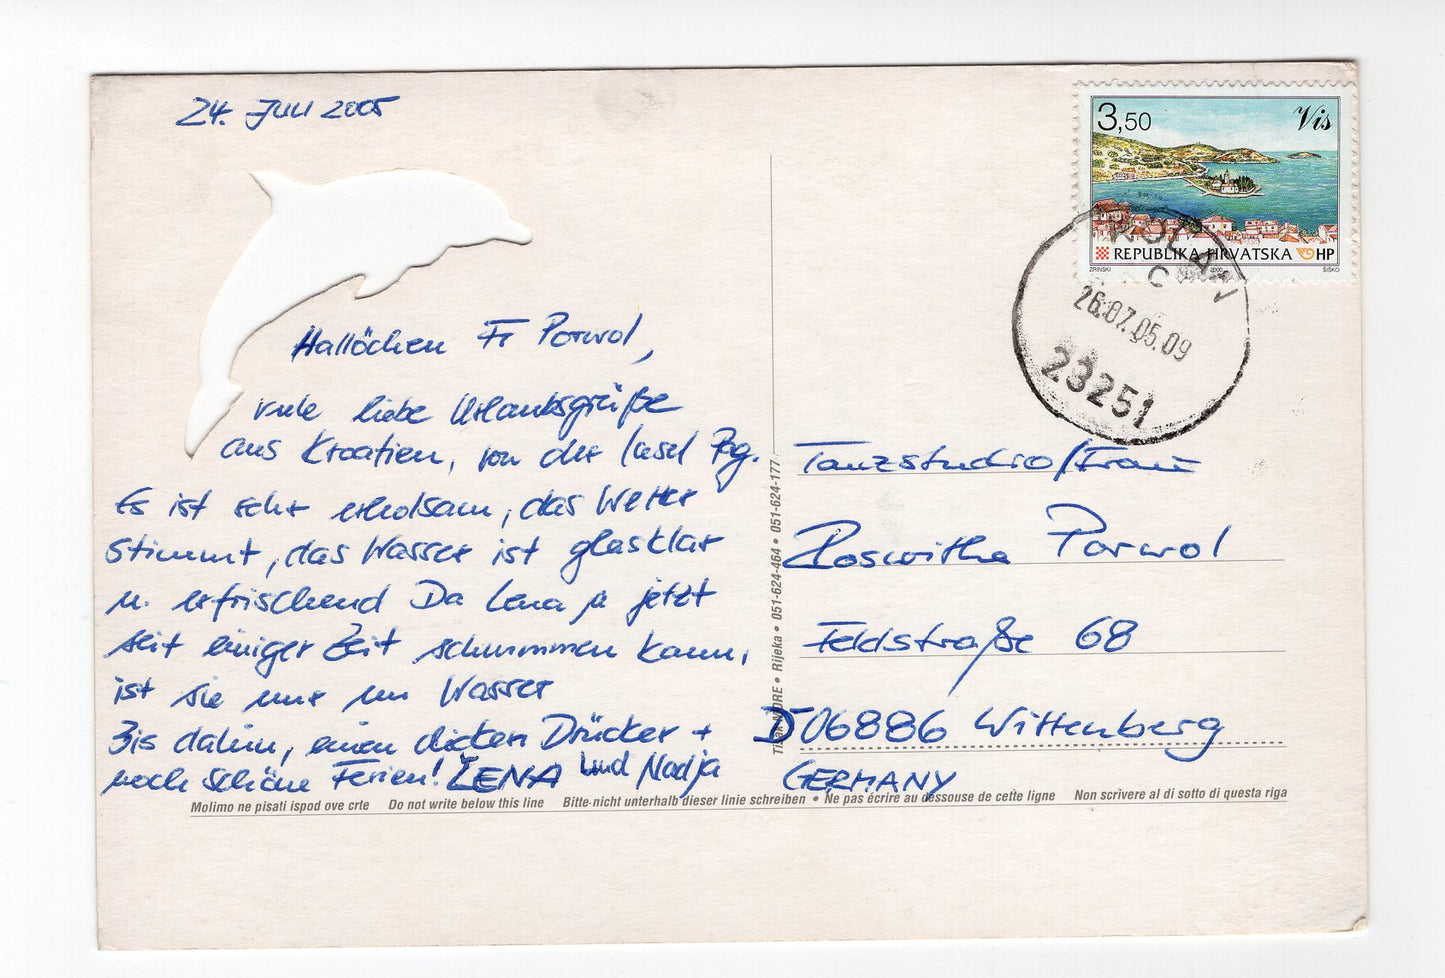 24. Juli 2005
Hallöchen Fr Porwol,
viele liebe Urlaubsgrüße
aus Kroatien, von der Insel Pag.
Es ist sehr erholsam, das Wetter
stimmt, das Wasser ist glasklar
u. erfrischend Da Lena ja jetzt
seit einiger Zeit schwimmen kann,
ist sie nur im Wasser
Bis dahin, einen dicken Drücker +
noch schöne Ferien! LENA und Nadja
3,50 Vis
REPUBLIKA HRVATSKA HP
ZRINSKI 2000 ŠIŠKO
KOLAN
C
26.07.05.09
23251
Tanzstudio/Frau
Roswitha Porwol
Feldstraße 68
D 06886 Wittenberg
GERMANY
Tisak MORE • Rijeka • 051-624-464 • 051-624-177
Molimo ne pisati ispod ove crte Do not write below this line Bitte nicht unterhalb dieser linie schreiben • Ne pas écrire au dessouse de cette ligne Non scrivere al di sotto di questa riga